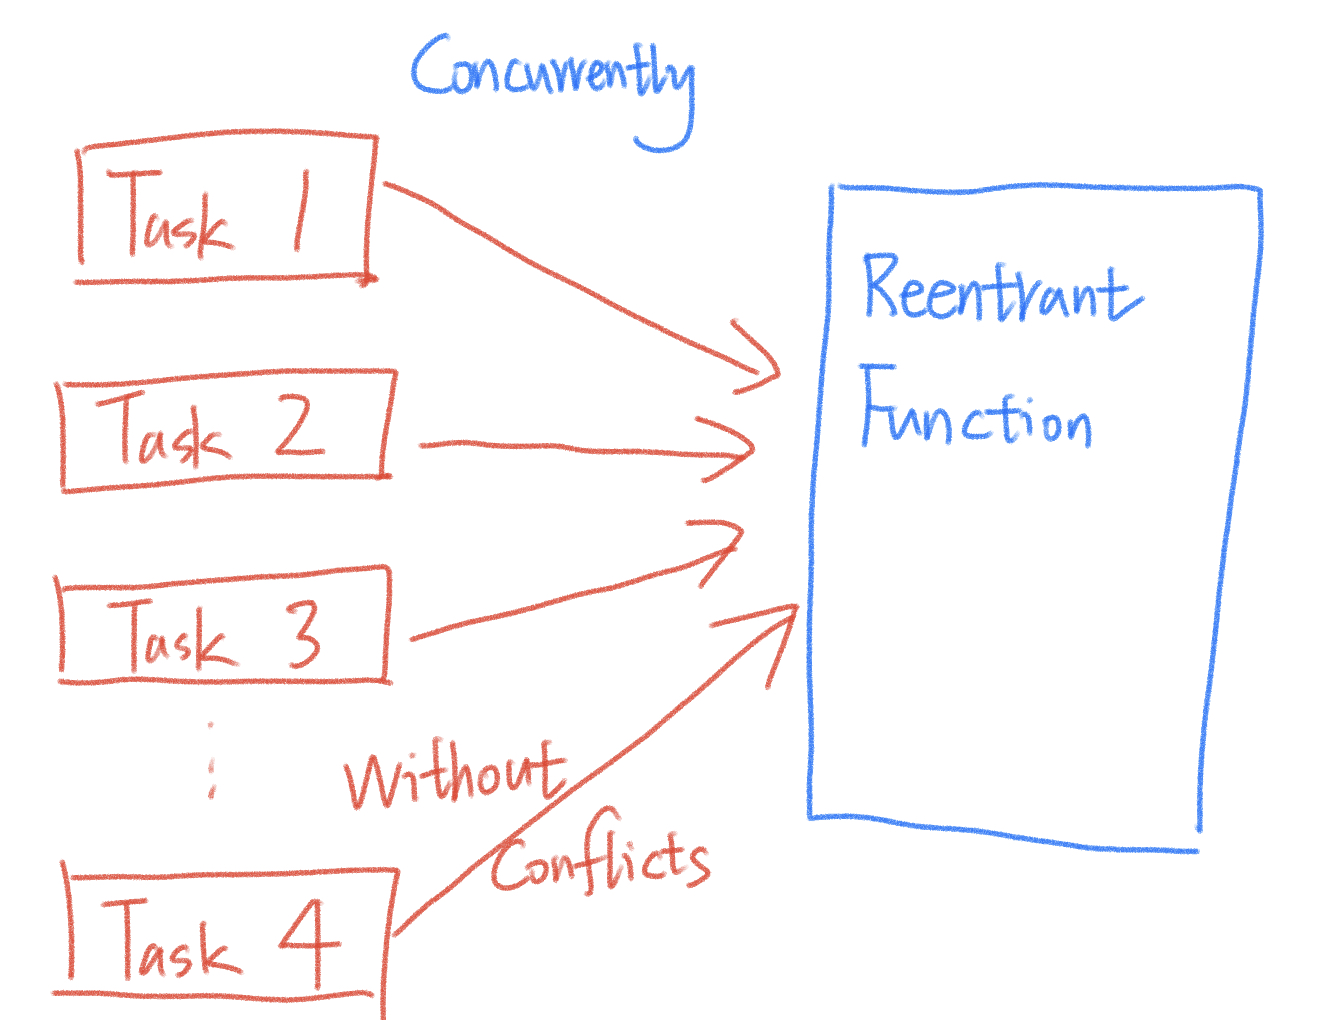 Concurrently
Task 1
Task 2
Task 3
Task 4
Without
Conflicts
Reentrant
Function